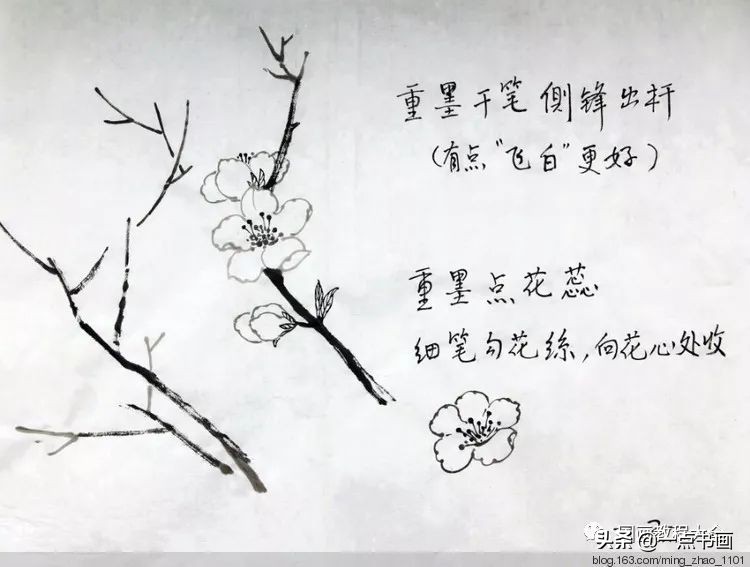 重墨干笔侧锋出杆
（有点“飞白”更好）
重墨点花蕊
细笔勾花丝，向花心处收
国画教程
头条 @一点书画
blog.163.com/ming_zhao_1101